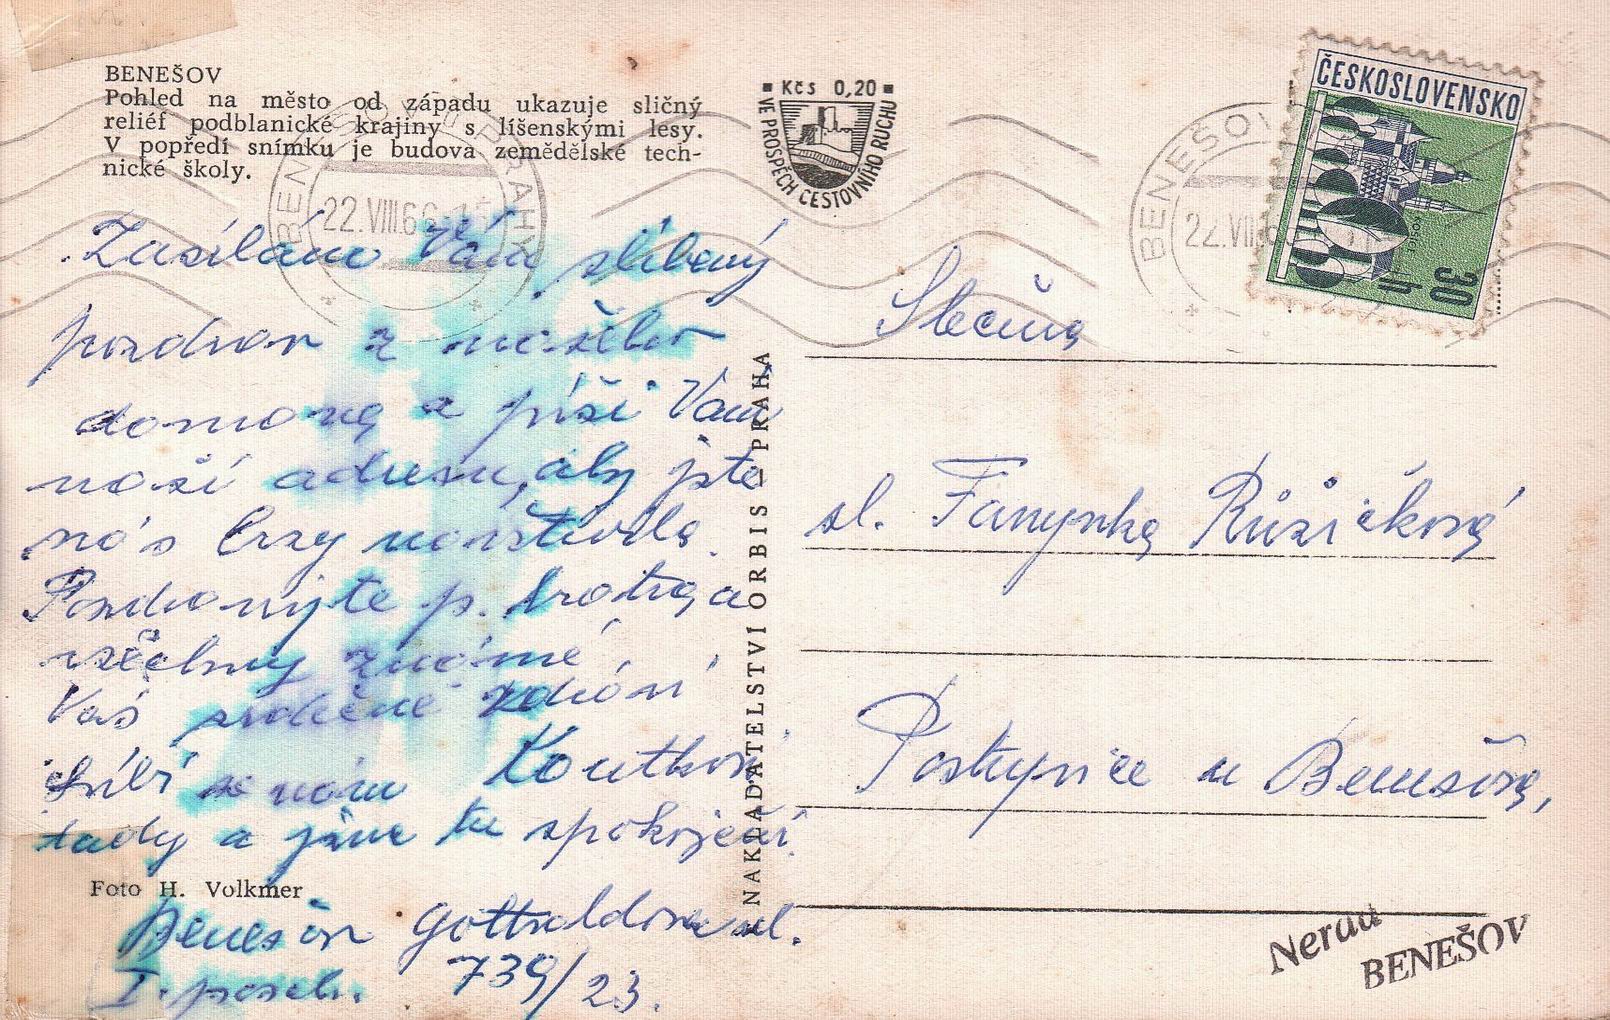 BENEŠOV
Pohled na město od západu ukazuje sličný
reliéf podblanické krajiny s líšenskými lesy.
V popředí snímku je budova zemědělské tech-
nické školy.
Kčs 0,20
VE PROSPĚCH CESTOVNÍHO RUCHU
ČESKOSLOVENSKO
30 h
BENEŠOV U PRAHY
22.VIII.66-15
BENEŠOV
22.VIII.6
Zasílám Vám slíbený
pozdrav z našeho
domova a píši Vám
naší adresu, aby jste
nás brzy navštívila.
Pozdravujte p. bratra a
všechny známé,
Vás srdečně zdraví
Koutkovi
líbí se nám
tady a jsme tu spokojeni.
Foto H. Volkmer
Benešov Gottwaldova ul.
I. posch. 739/23.
NAKLADATELSTVÍ ORBIS — PRAHA
Slečna
sl. Fanynka Růžičková
Postupice u Benešova,
Nerad
BENEŠOV